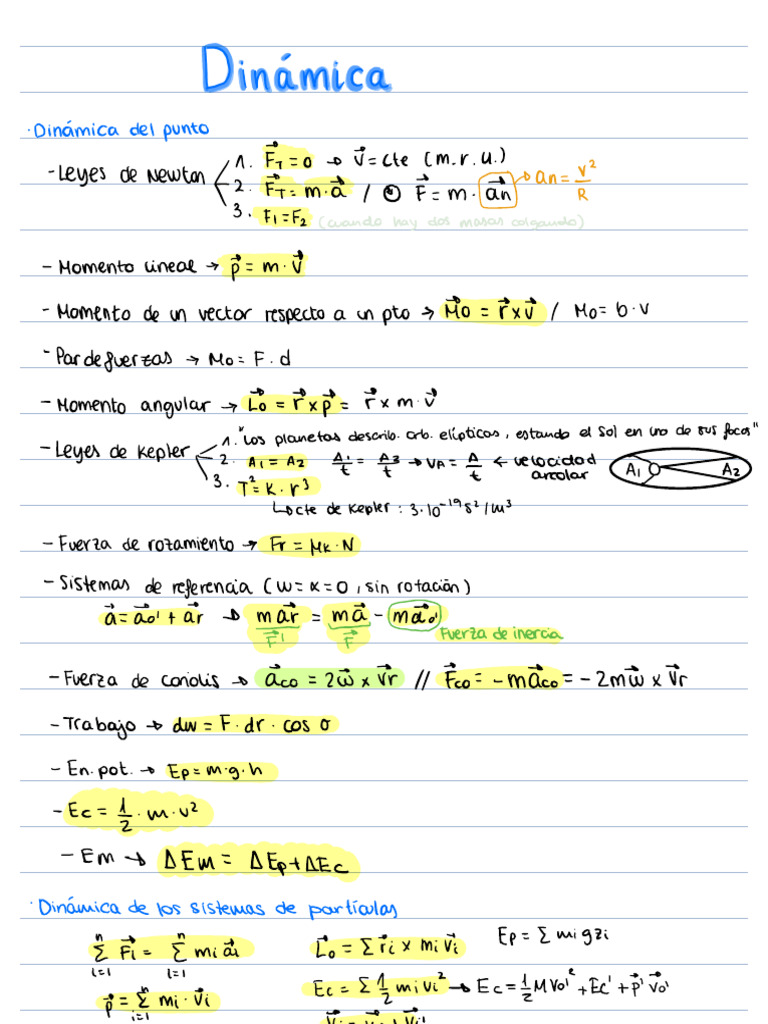 Dinámica
· Dinámica del punto
- Leyes de Newton
1. F⃗T = 0 → v⃗ = cte (m.r.u.)
2. F⃗T = m · a⃗ / F⃗ = m · a⃗n → an = v²/R
3. F1 = F2 (cuando hay dos masas colgando)
- Momento lineal → p⃗ = m · v⃗
- Momento de un vector respecto a un pto → M⃗o = r⃗ x v⃗ / Mo = b · v
- Par de fuerzas → Mo = F · d
- Momento angular → L⃗o = r⃗ x p⃗ = r⃗ x m · v⃗
- Leyes de Kepler
1. "Los planetas describ. orb. elípticas, estando el Sol en uno de sus focos"
2. A1 = A2 A1/t = A3/t → VA = A/t ← velocidad areolar
A1 A2
3. T² = K · r³
↳ cte de Kepler : 3·10⁻¹⁹ s²/m³
- Fuerza de rozamiento → Fr = μk · N
- Sistemas de referencia (ω = α = 0, sin rotación)
a⃗ = a⃗o' + a⃗r → m a⃗r = m a⃗ - m a⃗o'
F⃗' F⃗ Fuerza de inercia
- Fuerza de coriolis → a⃗co = 2ω⃗ x v⃗r // F⃗co = -m a⃗co = -2m ω⃗ x v⃗r
- Trabajo → dw = F · dr · cos σ
- En. pot. → Ep = m·g·h
- Ec = 1/2 · m · v²
- Em → ΔEm = ΔEp + ΔEc
· Dinámica de los sistemas de partículas
n Σ i=1 F⃗i = n Σ i=1 mi a⃗i L⃗o = Σ r⃗i x mi v⃗i Ep = Σ mi g zi
p⃗ = n Σ i=1 mi · v⃗i Ec = Σ 1/2 mi vi² → Ec = 1/2 M vo'² + Ec' + p⃗' v⃗o'